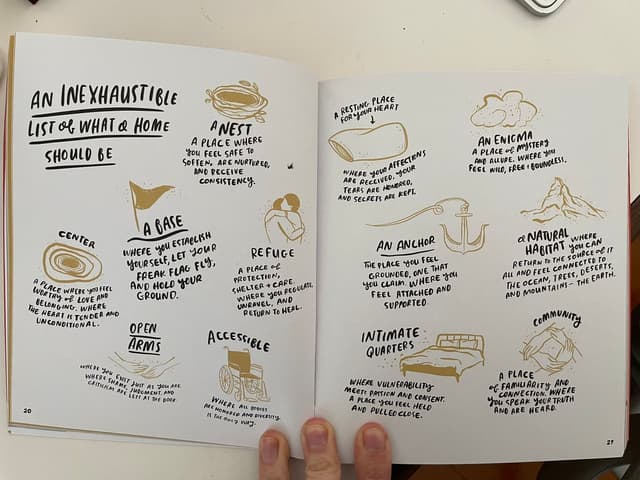 AN INEXHAUSTIBLE
LIST of WHAT a HOME
SHOULD BE
A NEST
A PLACE WHERE
YOU FEEL SAFE TO
SOFTEN, ARE NURTURED,
AND RECEIVE
CONSISTENCY.
A BASE
WHERE YOU ESTABLISH
YOURSELF, LET YOUR
FREAK FLAG FLY,
AND HOLD YOUR
GROUND.
CENTER
A PLACE WHERE YOU FEEL
WORTHY OF LOVE AND
BELONGING. WHERE
THE HEART IS TENDER AND
UNCONDITIONAL.
REFUGE
A PLACE OF
PROTECTION,
SHELTER + CARE.
WHERE YOU REGULATE,
UNRAVEL, AND
RETURN TO HEAL.
OPEN
ARMS
WHERE YOU EXIST JUST AS YOU ARE.
WHERE SHAME, JUDGMENT, AND
CRITICISM ARE LEFT AT THE DOOR.
ACCESSIBLE
WHERE ALL BODIES
ARE HONORED AND DIVERSITY
IS THE ONLY WAY.
20
A RESTING PLACE
FOR YOUR HEART
WHERE YOUR AFFECTIONS
ARE RECEIVED, YOUR
TEARS ARE HONORED,
AND SECRETS ARE KEPT.
AN ENIGMA
A PLACE of MYSTERY
AND ALLURE. WHERE YOU
FEEL WILD, FREE + BOUNDLESS.
AN ANCHOR
THE PLACE YOU FEEL
GROUNDED, ONE THAT
YOU CLAIM. WHERE YOU
FEEL ATTACHED AND
SUPPORTED.
a NATURAL
HABITAT WHERE
YOU CAN
RETURN TO THE SOURCE OF IT
ALL AND FEEL CONNECTED TO
THE OCEAN, TREES, DESERTS,
AND MOUNTAINS – THE EARTH.
INTIMATE
QUARTERS
WHERE VULNERABILITY
MEETS PASSION AND CONSENT.
A PLACE YOU FEEL HELD
AND PULLED CLOSE.
COMMUNITY
A PLACE
of FAMILIARITY AND
CONNECTION. WHERE
YOU SPEAK YOUR TRUTH
AND ARE HEARD.
21